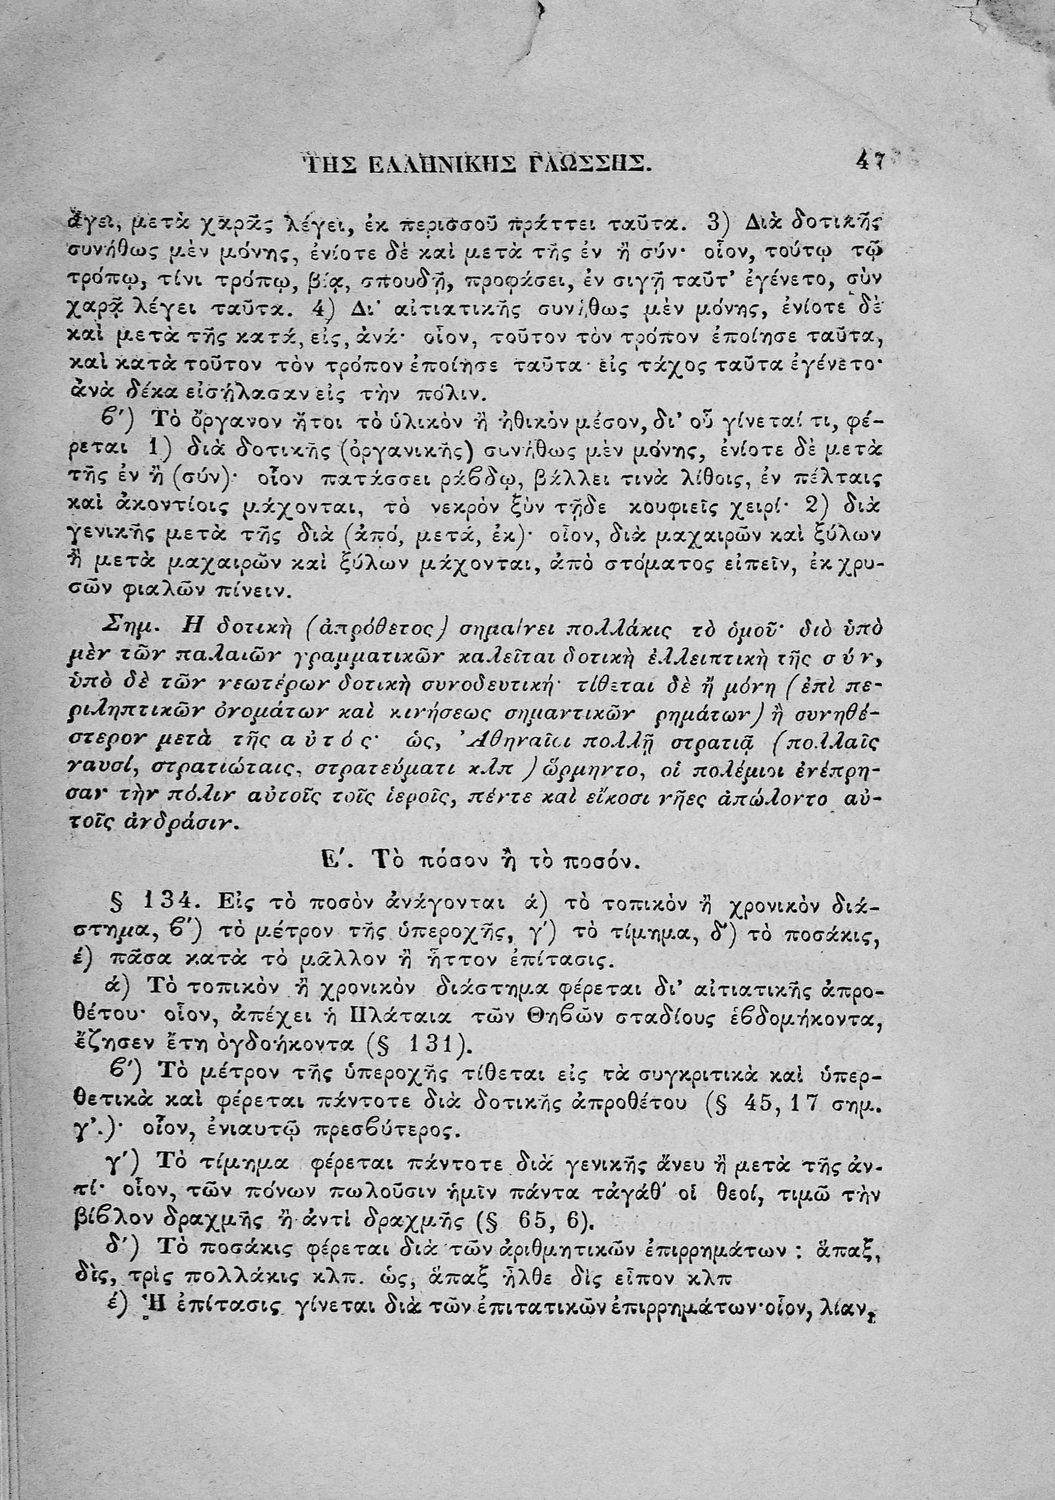 ΤΗΣ ΕΛΛΗΝΙΚΗΣ ΓΛΩΣΣΗΣ. 47
ἄγει, μετὰ χαρᾶς λέγει, ἐκ περισσοῦ πράττει ταῦτα. 3) Διὰ δοτικῆς
συνήθως μὲν μόνης, ἐνίοτε δὲ καὶ μετὰ τῆς ἐν ἢ σύν· οἷον, τούτῳ τῷ
τρόπῳ, τίνι τρόπῳ, βίᾳ, σπουδῇ, προφάσει, ἐν σιγῇ ταῦτ' ἐγένετο, σὺν
χαρᾷ λέγει ταῦτα. 4) Δι' αἰτιατικῆς συνήθως μὲν μόνης, ἐνίοτε δὲ
καὶ μετὰ τῆς κατά, εἰς, ἀνά· οἷον, τοῦτον τὸν τρόπον ἐποίησε ταῦτα,
καὶ κατὰ τοῦτον τὸν τρόπον ἐποίησε ταῦτα· εἰς τάχος ταῦτα ἐγένετο·
ἀνὰ δέκα εἰσήλασαν εἰς τὴν πόλιν.
ϐ') Τὸ ὄργανον ἤτοι τὸ ὑλικὸν ἢ ἠθικὸν μέσον, δι' οὗ γίνεταί τι, φέ-
ρεται 1) διὰ δοτικῆς (ὀργανικῆς) συνήθως μὲν μόνης, ἐνίοτε δὲ μετὰ
τῆς ἐν ἢ (σύν)· οἷον πατάσσει ράϐδῳ, βάλλει τινὰ λίθοις, ἐν πέλταις
καὶ ἀκοντίοις μάχονται, τὸ νεκρὸν ξὺν τῇδε κουφιεῖς χειρί· 2) διὰ
γενικῆς μετὰ τῆς διὰ (ἀπό, μετά, ἐκ)· οἷον, διὰ μαχαιρῶν καὶ ξύλων
ἢ μετὰ μαχαιρῶν καὶ ξύλων μάχονται, ἀπὸ στόματος εἰπεῖν, ἐκ χρυ-
σῶν φιαλῶν πίνειν.
Σημ. Η δοτικὴ (ἀπρόθετος) σημαίνει πολλάκις τὸ ὁμοῦ· διὸ ὑπὸ
μὲν τῶν παλαιῶν γραμματικῶν καλεῖται δοτικὴ ἐλλειπτικὴ τῆς σύν,
ὑπὸ δὲ τῶν νεωτέρων δοτικὴ συνοδευτική· τίθεται δὲ ἢ μόνη (ἐπὶ πε-
ριληπτικῶν ὀνομάτων καὶ κινήσεως σημαντικῶν ρημάτων) ἢ συνηθέ-
στερον μετὰ τῆς αὐτός· ὡς, Ἀθηναῖοι πολλῇ στρατιᾷ (πολλαῖς
ναυσί, στρατιώταις, στρατεύματι κλπ ) ὥρμηντο, οἱ πολέμιοι ἐνέπρη-
σαν τὴν πόλιν αὐτοῖς τοῖς ἱεροῖς, πέντε καὶ εἴκοσι νῆες ἀπώλοντο αὐ-
τοῖς ἀνδράσιν.
Ε'. Τὸ πόσον ἢ τὸ ποσόν.
§ 134. Εἰς τὸ ποσὸν ἀνάγονται ά) τὸ τοπικὸν ἢ χρονικὸν διά-
στημα, ϐ') τὸ μέτρον τῆς ὑπεροχῆς, γ') τὸ τίμημα, δ') τὸ ποσάκις,
έ) πᾶσα κατὰ τὸ μᾶλλον ἢ ἧττον ἐπίτασις.
ά) Τὸ τοπικὸν ἢ χρονικὸν διάστημα φέρεται δι' αἰτιατικῆς ἀπρο-
θέτου· οἷον, ἀπέχει ἡ Πλάταια τῶν Θηϐῶν σταδίους ἑϐδομήκοντα,
ἔζησεν ἔτη ὀγδοήκοντα (§ 131).
ϐ') Τὸ μέτρον τῆς ὑπεροχῆς τίθεται εἰς τὰ συγκριτικὰ καὶ ὑπερ-
θετικὰ καὶ φέρεται πάντοτε διὰ δοτικῆς ἀπροθέτου (§ 45, 17 σημ.
γ'.)· οἷον, ἐνιαυτῷ πρεσϐύτερος.
γ') Τὸ τίμημα φέρεται πάντοτε διὰ γενικῆς ἄνευ ἢ μετὰ τῆς ἀν-
τί· οἷον, τῶν πόνων πωλοῦσιν ἡμῖν πάντα τἀγάθ' οἱ θεοί, τιμῶ τὴν
βίϐλον δραχμῆς ἢ ἀντὶ δραχμῆς (§ 65, 6).
δ') Τὸ ποσάκις φέρεται διὰ τῶν ἀριθμητικῶν ἐπιρρημάτων : ἅπαξ,
δὶς, τρὶς πολλάκις κλπ. ὡς, ἅπαξ ἦλθε δὶς εἶπον κλπ
έ) Ἡ ἐπίτασις γίνεται διὰ τῶν ἐπιτατικῶν ἐπιρρημάτων· οἷον, λίαν,